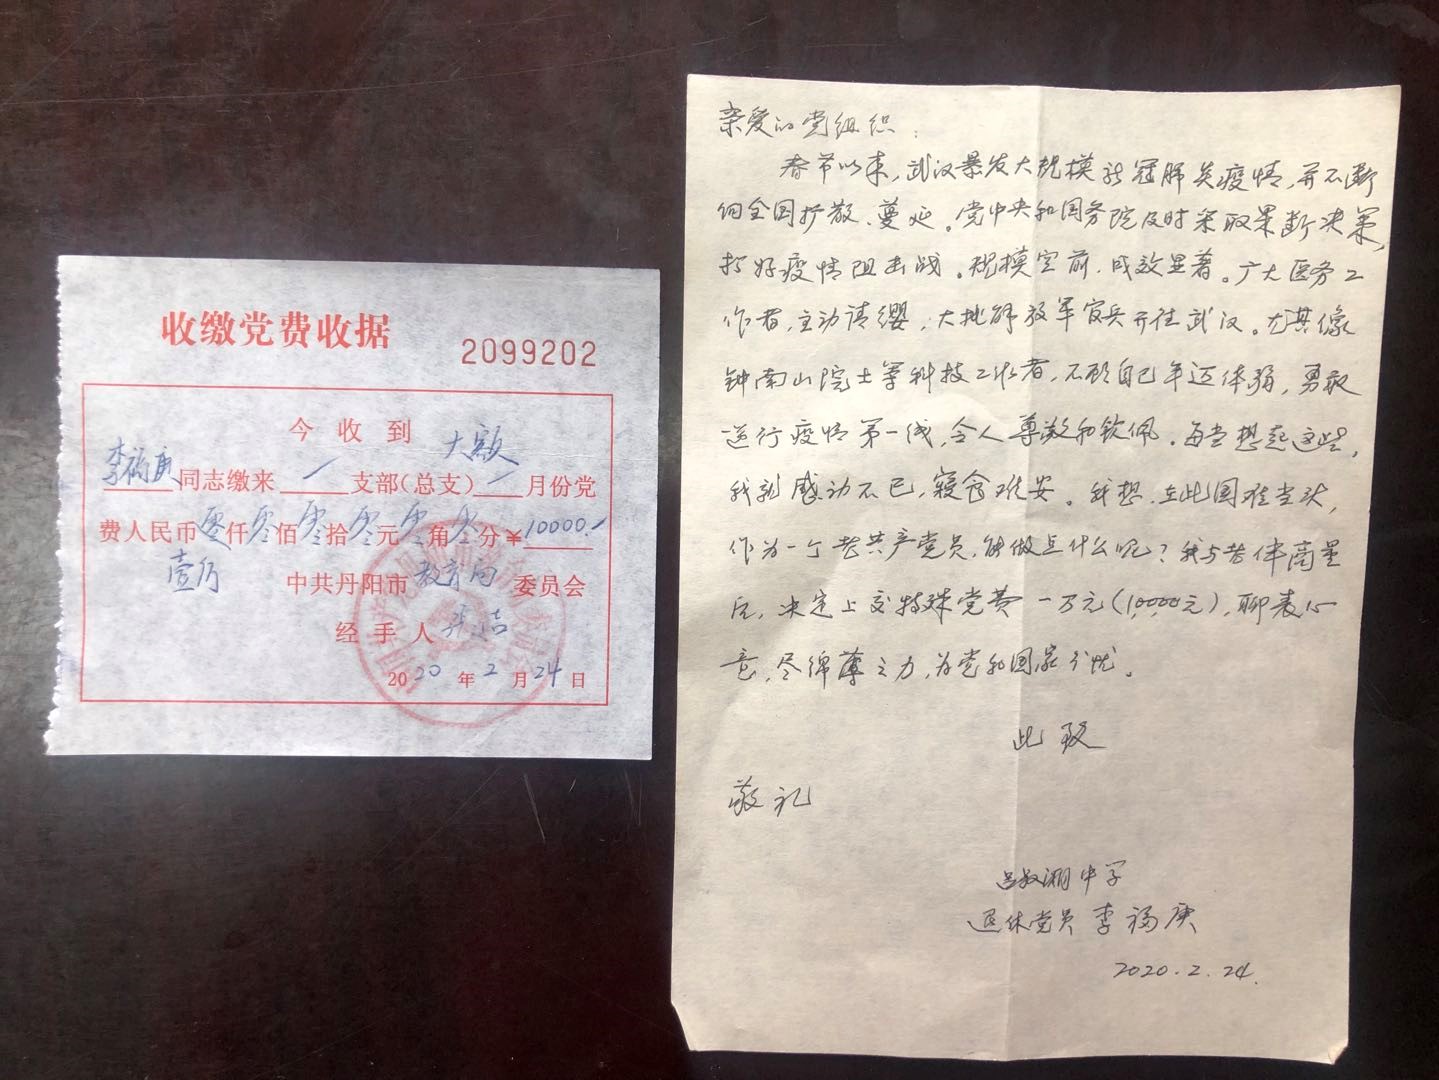 收缴党费收据
2099202
今收到 大额
李福庚同志缴来 / 支部(总支) / 月份党
费人民币零仟零佰零拾零元零角零分¥10000.
壹万
中共丹阳市教育局委员会
经手人
2020年2月24日
亲爱的党组织:
春节以来,武汉暴发大规模新冠肺炎疫情,并不断
向全国扩散、蔓延。党中央和国务院及时采取果断决策,
打好疫情阻击战。规模空前,成效显著。广大医务工
作者,主动请缨,大批解放军官兵开往武汉。尤其像
钟南山院士等科技工作者,不顾自己年迈体弱,勇敢
逆行疫情第一线,令人尊敬和钦佩。每当想起这些,
我就感动不已,寝食难安。我想,在此国难当头,
作为一个老共产党员,能做点什么呢?我与老伴商量
后,决定上交特殊党费一万元(10,000元),聊表心
意,尽绵薄之力,为党和国家分忧。
此致
敬礼
吕叔湘中学
退休党员 李福庚
2020.2.24.